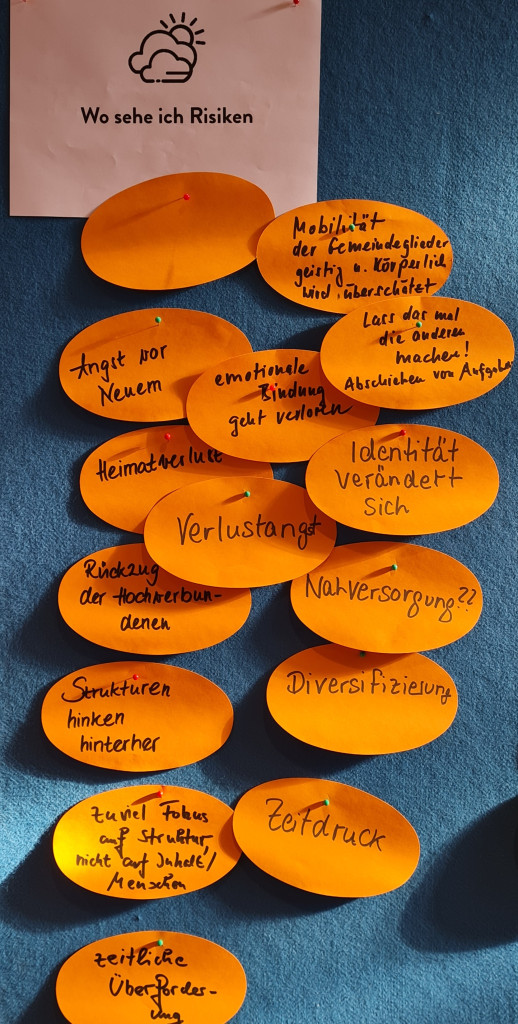 Wo sehe ich Risiken
Mobilität
der Gemeindeglieder
geistig u. Körperlich
wird überschätzt
Lass das mal
die anderen
machen!
Abschieben von Aufgaben
Angst vor
Neuem
emotionale
Bindung
geht verloren
Heimatverlust
Identität
verändert
sich
Verlustangst
Rückzug
der Hochverbun-
denen
Nahversorgung??
Strukturen
hinken
hinterher
Diversifizierung
zuviel Fokus
auf Struktur,
nicht auf Inhalt/
Menschen
Zeitdruck
zeitliche
Überforder-
ung